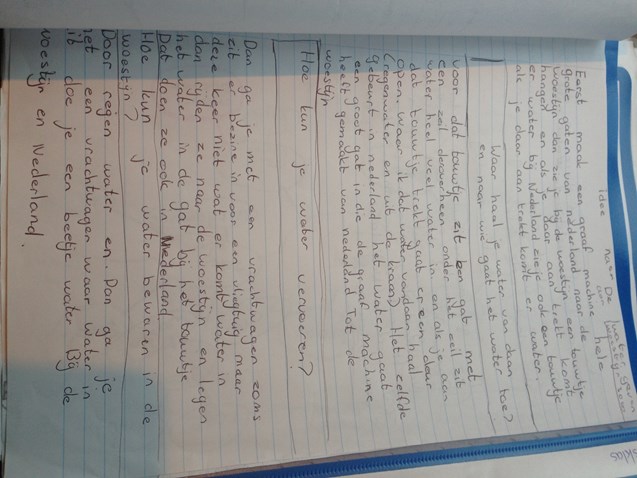 idee naar De
Eerst maak een graaf machine hele
grote gaten van nederland naar de
woestijn dan zie je bij de woestijn een touwtje
hangen en als je daar aan trekt komt
er water bij Nederland zie je ook een touwtje
als je daar aan trekt komt er water.
Waar haal je water van daan
en naar wie gaat het water toe?
voor dat touwtje zit een gat met
een zeil deroverheen onder het zeil zit
water heel veel water in en als je aan
dat touwtje trekt gaat er een deur
open. Waar ik dat water vandaan haal
(regenwater en uit de kraan) Het zelfde
gebeurt in nederland het water gaat
een groot gat in die de graaf machine
heeft gemaakt van nederland Tot de
woestijn
Hoe kun je water vervoeren?
Dan ga je met een vrachtwagen zoms
zit er bezine in voor een vliegtuig maar
deze keer niet wat er komt water in
dan rijden ze naar de woestijn en legen
het water in de gat bij het touwtje
Dat doen ze ook in Nederland
Hoe kun je water bewaren in de
woestijn?
Door regen water en. Dan ga je
met een vrachtwagen waar water in
zit doe je een beetje water Bij de
woestijn en Nederland.